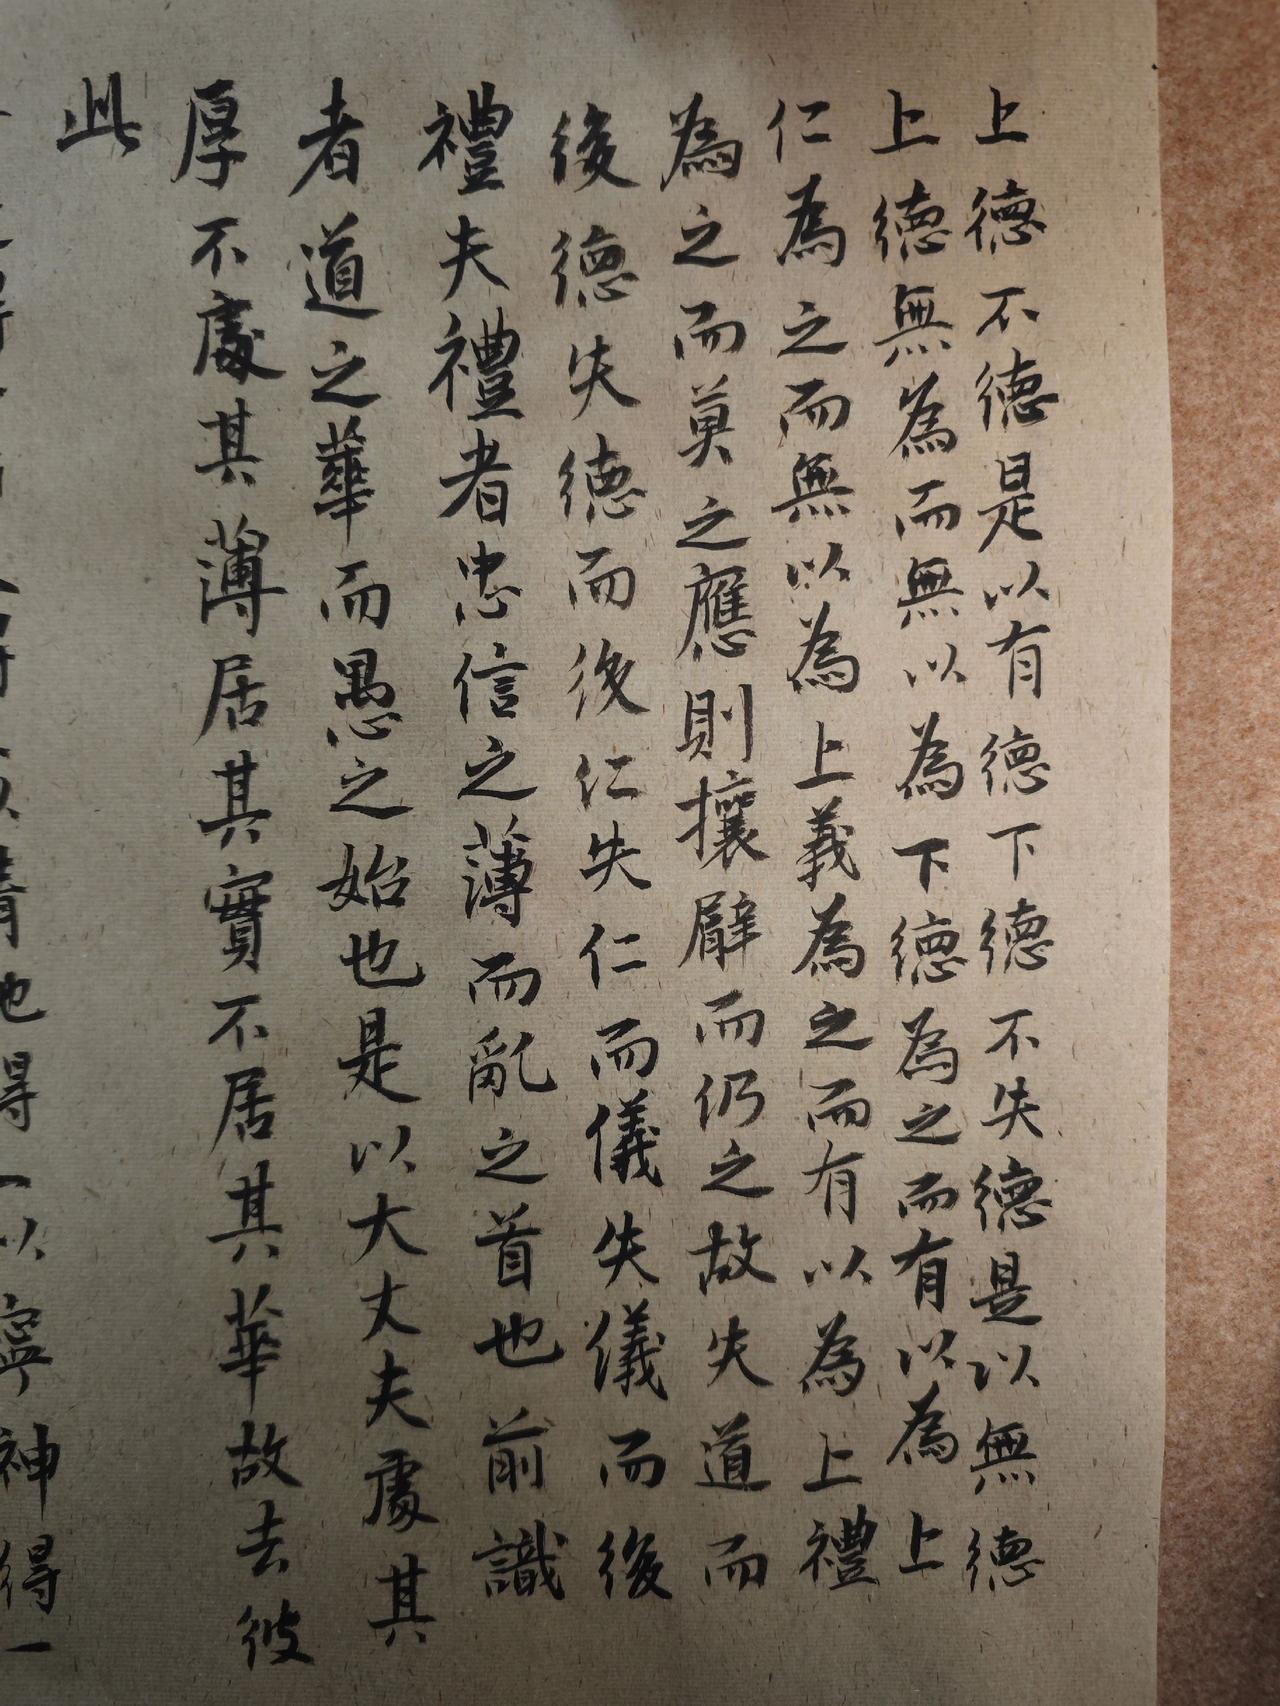 上德不德是以有德下德不失德是以無德
上德無為而無以為下德為之而有以為上
仁為之而無以為上義為之而有以為上禮
為之而莫之應則攘臂而仍之故失道而
後德失德而後仁失仁而儀失儀而後
禮夫禮者忠信之薄而亂之首也前識
者道之華而愚之始也是以大丈夫處其
厚不處其薄居其實不居其華故去彼
此
清地得一以寧神得一